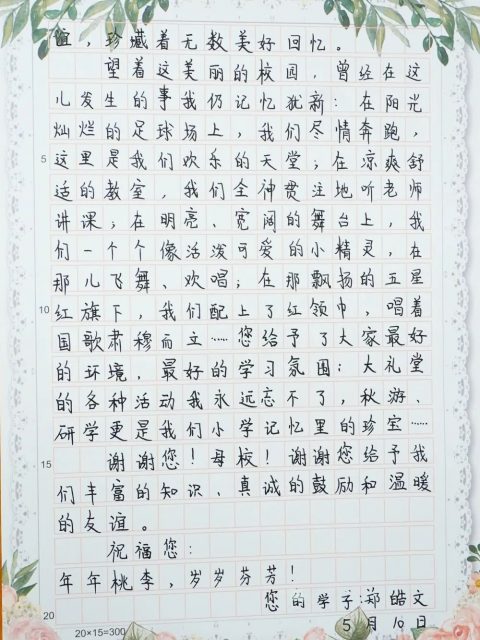 谊，珍藏着无数美好回忆。
望着这美丽的校园，曾经在这
儿发生的事我仍记忆犹新：在阳光
灿烂的足球场上，我们尽情奔跑，
5 这里是我们欢乐的天堂；在凉爽舒
适的教室，我们全神贯注地听老师
讲课；在明亮、宽阔的舞台上，我
们一个个像活泼可爱的小精灵，在
那儿飞舞、欢唱；在那飘扬的五星
10 红旗下，我们配上了红领巾，唱着
国歌肃穆而立……您给予了大家最好
的环境，最好的学习氛围；大礼堂
的各种活动我永远忘不了，秋游、
研学更是我们小学记忆里的珍宝……
15 谢谢您！母校！谢谢您给予我
们丰富的知识、真诚的鼓励和温暖
的友谊。
祝福您：
年年桃李，岁岁芬芳！
20 您的学子：郑皓文
20×15=300 5月10日